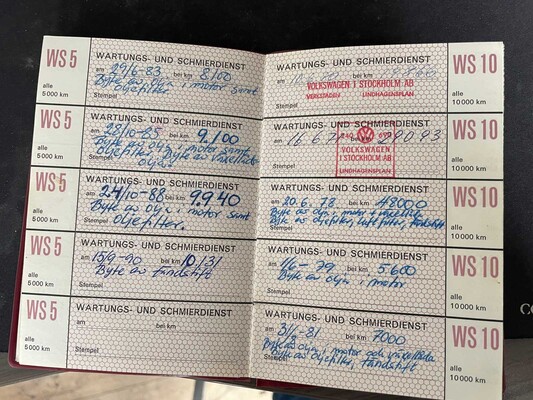 WS 5
alle
5 000 km
WARTUNGS- UND SCHMIERDIENST
am 09/6-83 bei km 8100
Byte av olja i motor samt
oljefilter.
WS 5
alle
5 000 km
WARTUNGS- UND SCHMIERDIENST
am 28/10-85 bei km 9.100
Byte av olja i motor samt
oljefilter. Byte av växellåds
olja
Stempel
WS 5
alle
5 000 km
WARTUNGS- UND SCHMIERDIENST
am 24/10-88 bei km 9.940
Byte av olja i motor samt
Stempel oljefilter.
WS 5
alle
5 000 km
WARTUNGS- UND SCHMIERDIENST
am 15/9-90 bei km 10.131
Byte av tändstift
Stempel
WS 5
alle
5 000 km
WARTUNGS- UND SCHMIERDIENST
am bei km
Stempel
WARTUNGS- UND SCHMIERDIENST
am bei km
VOLKSWAGEN I STOCKHOLM AB
VERKSTADEN LINDHAGENSPLAN
Stempel
WS 10
alle
10 000 km
WARTUNGS- UND SCHMIERDIENST
am 16.6.7 bei km 9093
VOLKSWAGEN
I STOCKHOLM AB
LINDHAGENSPLAN
Stempel
WS 10
alle
10 000 km
WARTUNGS- UND SCHMIERDIENST
am 20.6.78 bei km 48000
Byte av olja i motor
Byte av oljefilter, luftfilter, tändstift
Stempel
WS 10
alle
10 000 km
WARTUNGS- UND SCHMIERDIENST
am 1/6-79 bei km 5600
Byte av olja i motor
Stempel
WS 10
alle
10 000 km
WARTUNGS- UND SCHMIERDIENST
am 31/-81 bei km 7000
Byte av olja i motor och växellåda
Byte av oljefilter, tändstift
Stempel
WS 10
alle
10 000 km